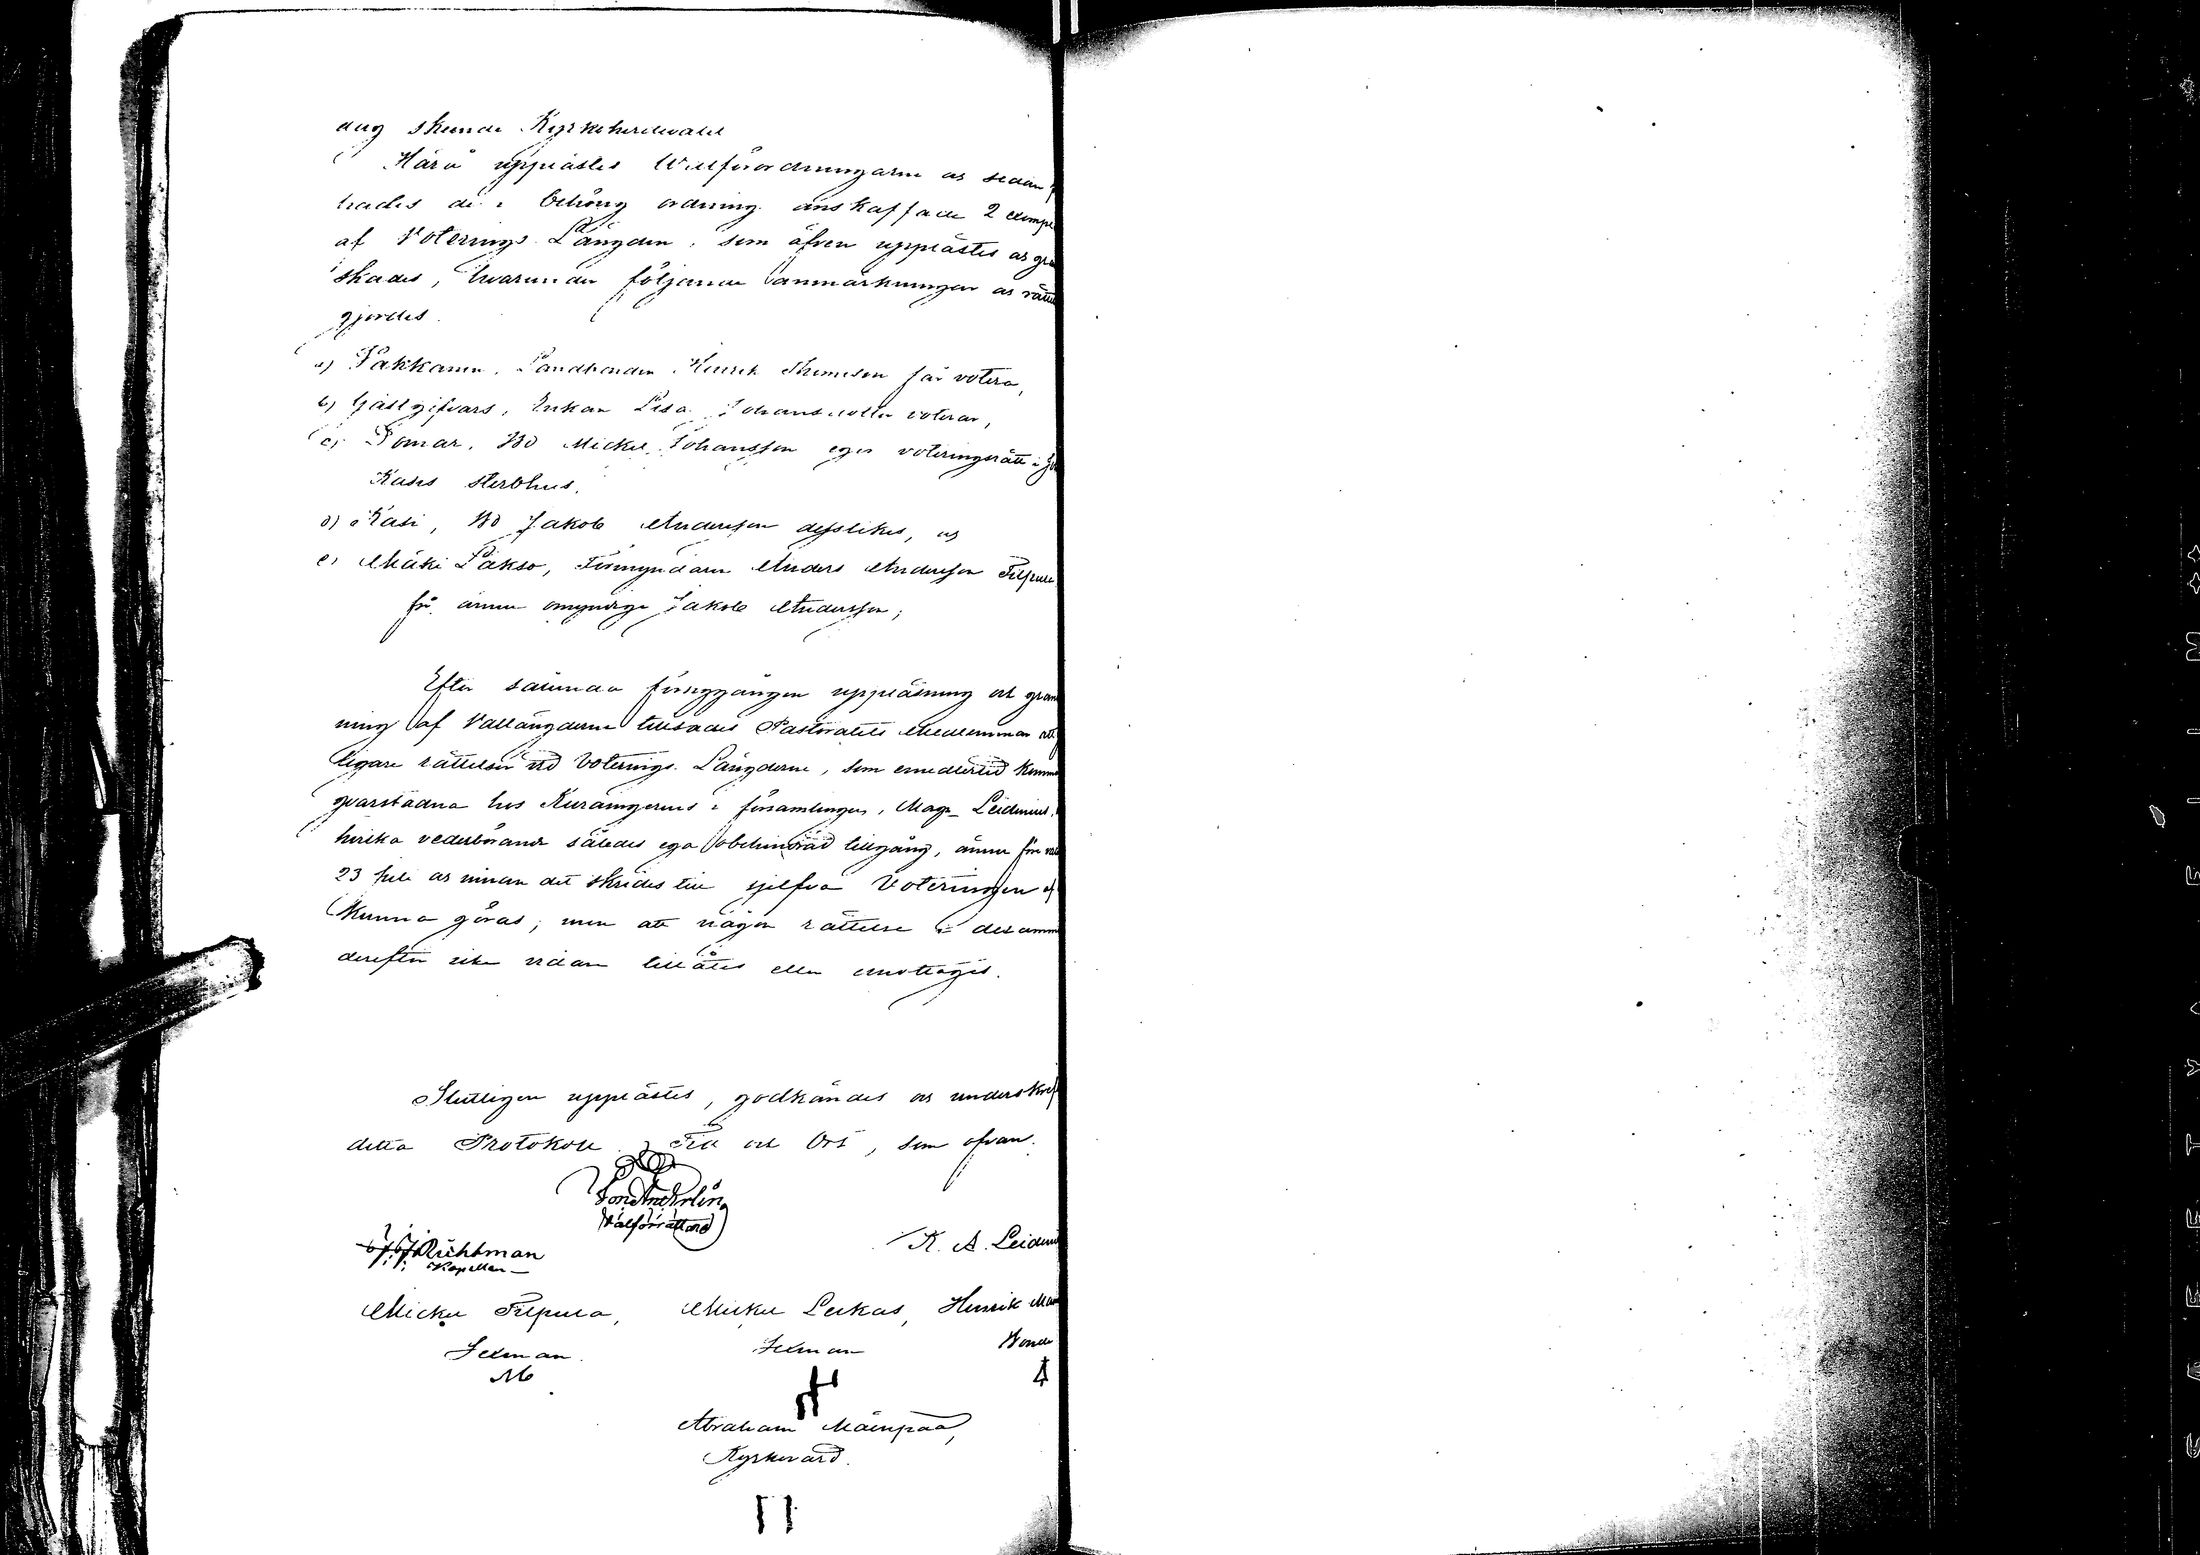 dag skeende Kyrkoherdevalet
Härå upplästes Walförordningarne os sedan
trades de i behörig ordning anskaffade 2 exempl
af Voterings Längden, som äfven upplästes os gra
skades, hvarunder följande anmärkningar os rätte
gjordes.
a) Pakkanen, Landbonden Henrik Thomeson får votera,
b) Gästgifvars, Enkan Lisa Johansdotter voterar,
c) Pomar, Bd Mickel Johansson eger voteringsrätt i
Kasis sterbhus,
d) Kasi, Bd Jakob Andersson desslikes, os
e) Mäki Läkso, Förmyndaren Anders Andersson Filpula
för ännu omyndige Jakob Andersson;
Efter sålunda föregången uppläsning och gran
ning af Vallängderne tillsades Pastoratets Medlemmar att
ligare rättelser vid Voterings Längderne, som emedlertid komma
qvarstadna hos i församlingen, Mag. Leidenius,
hvilka vederbörande således ega obehindrad tillgång, ännu före
23 Juli os innan det skrides till sjelfva Voteringen
kunna göras; men att någon rättelse i desamma
derefter icke vidare tillåtes eller emottages.
Slutligen upplästes, godkändes os underskref
detta Protokoll. Tid och Ort, som ofvan.
Valförrättare
Richtman K. A. Leideni
Kapellan
Mickel Filpula, Mickel Leikas, Henrik
Sexman. Sexman Bonde
M
Abraham Mäenpää,
Kyrkovärd.